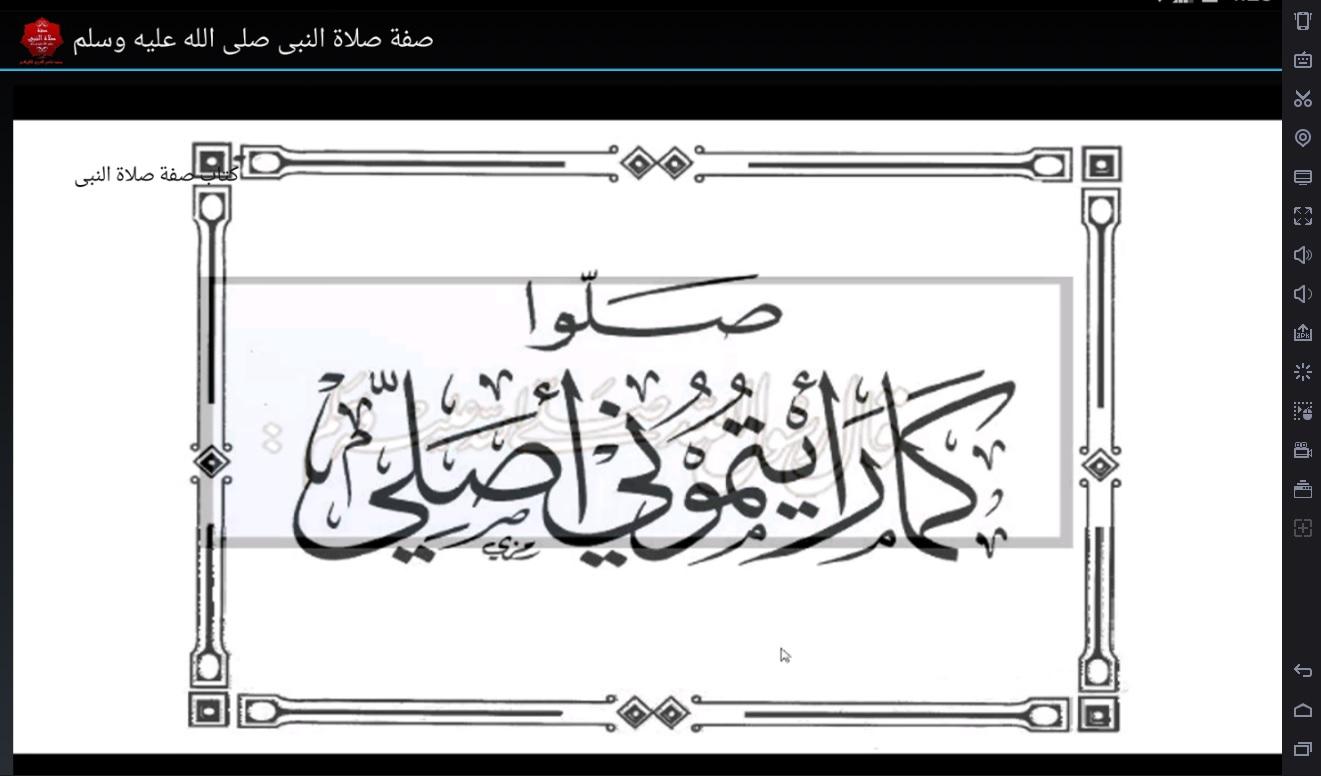 صفة صلاة النبى صلى الله عليه وسلم
كتاب صفة صلاة النبى
صَلّوا
كَمَا رَأَيْتُمُونِي أُصَلِّي